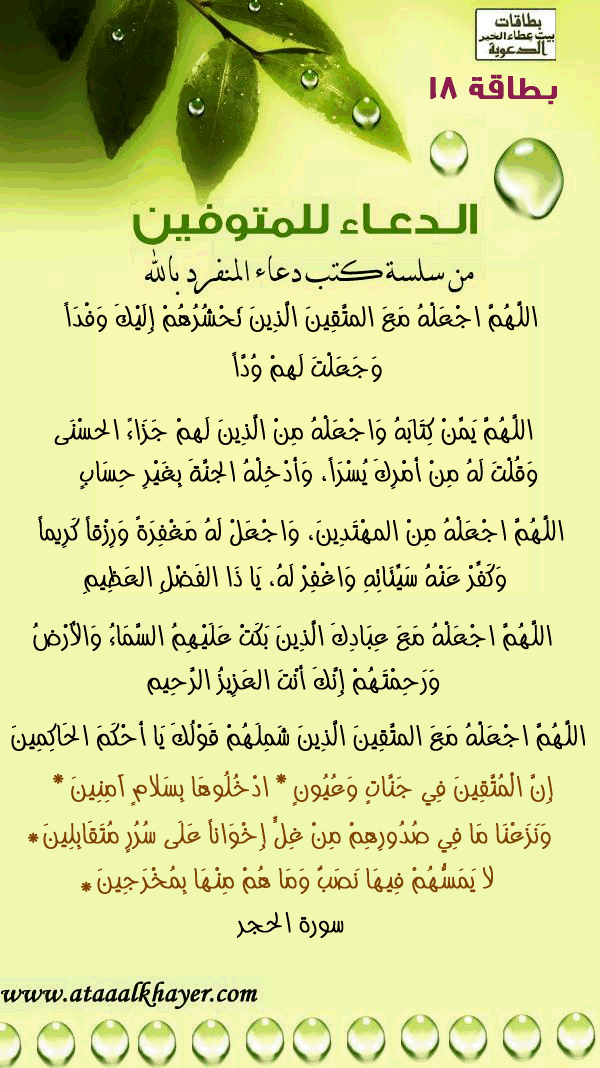 بطاقات
بيت عطاء الخير
الدعوية
بطاقة ١٨
الدعاء للمتوفين
من سلسة كتب دعاء المنفرد بالله
اللَّهُمَّ اجْعَلْهُ مَعَ المتَّقِينَ الَّذِينَ نَحْشُرُهُمْ إِلَيْكَ وَفْدَاً
وَجَعَلْتَ لَهمْ وُدَّاً
اللَّهُمَّ يَمِّنْ كِتَابَهُ وَاجْعَلْهُ مِنْ الَّذِينَ لَهمْ جَزَاءً الحسْنَى
وَقُلْتَ لَهُ مِنْ أمْرِكَ يُسْرَاً، وَأدْخِلْهُ الجنَّةَ بِغَيْرِ حِسَابٍ
اللَّهُمَّ اجْعَلْهُ مِنْ المهْتَدِينَ، وَاجْعَلْ لَهُ مَغْفِرَةً وَرِزْقاً كَرِيماً
وَكَفِّرْ عَنْهُ سَيِّئَاتِهِ وَاغْفِرْ لَهُ، يَا ذَا الفَضْلِ العَظِيمِ
اللَّهُمَّ اجْعَلْهُ مَعَ عِبَادِكَ الَّذِينَ بَكَتْ عَلَيْهِمُ السَّمَاءُ وَالْأَرْضُ
وَرَحِمْتَهُمْ إِنَّكَ أنْتَ العَزِيزُ الرَّحِيم
اللَّهُمَّ اجْعَلْهُ مَعَ المتَّقِينَ الَّذِينَ شَمِلَهُمْ قَوْلُكَ يَا أحْكَمَ الحَاكِمِينَ
إِنَّ الْمُتَّقِينَ فِي جَنَّاتٍ وَعُيُونٍ * ادْخُلُوهَا بِسَلَامٍ آمِنِينَ *
وَنَزَعْنَا مَا فِي صُدُورِهِمْ مِنْ غِلٍّ إِخْوَاناً عَلَى سُرُرٍ مُتَقَابِلِينَ *
لا يَمَسُّهُمْ فِيهَا نَصَبٌ وَمَا هُمْ مِنْهَا بِمُخْرَجِينَ *
سورة الحجر
www.ataaalkhayer.com